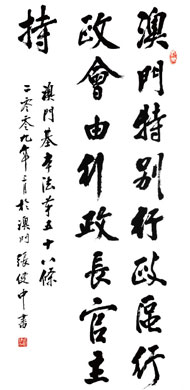 澳門特别行政區行
政會由行政長官主
持
澳門基本法第五十八條
二零零九年二月於澳門 張健中書